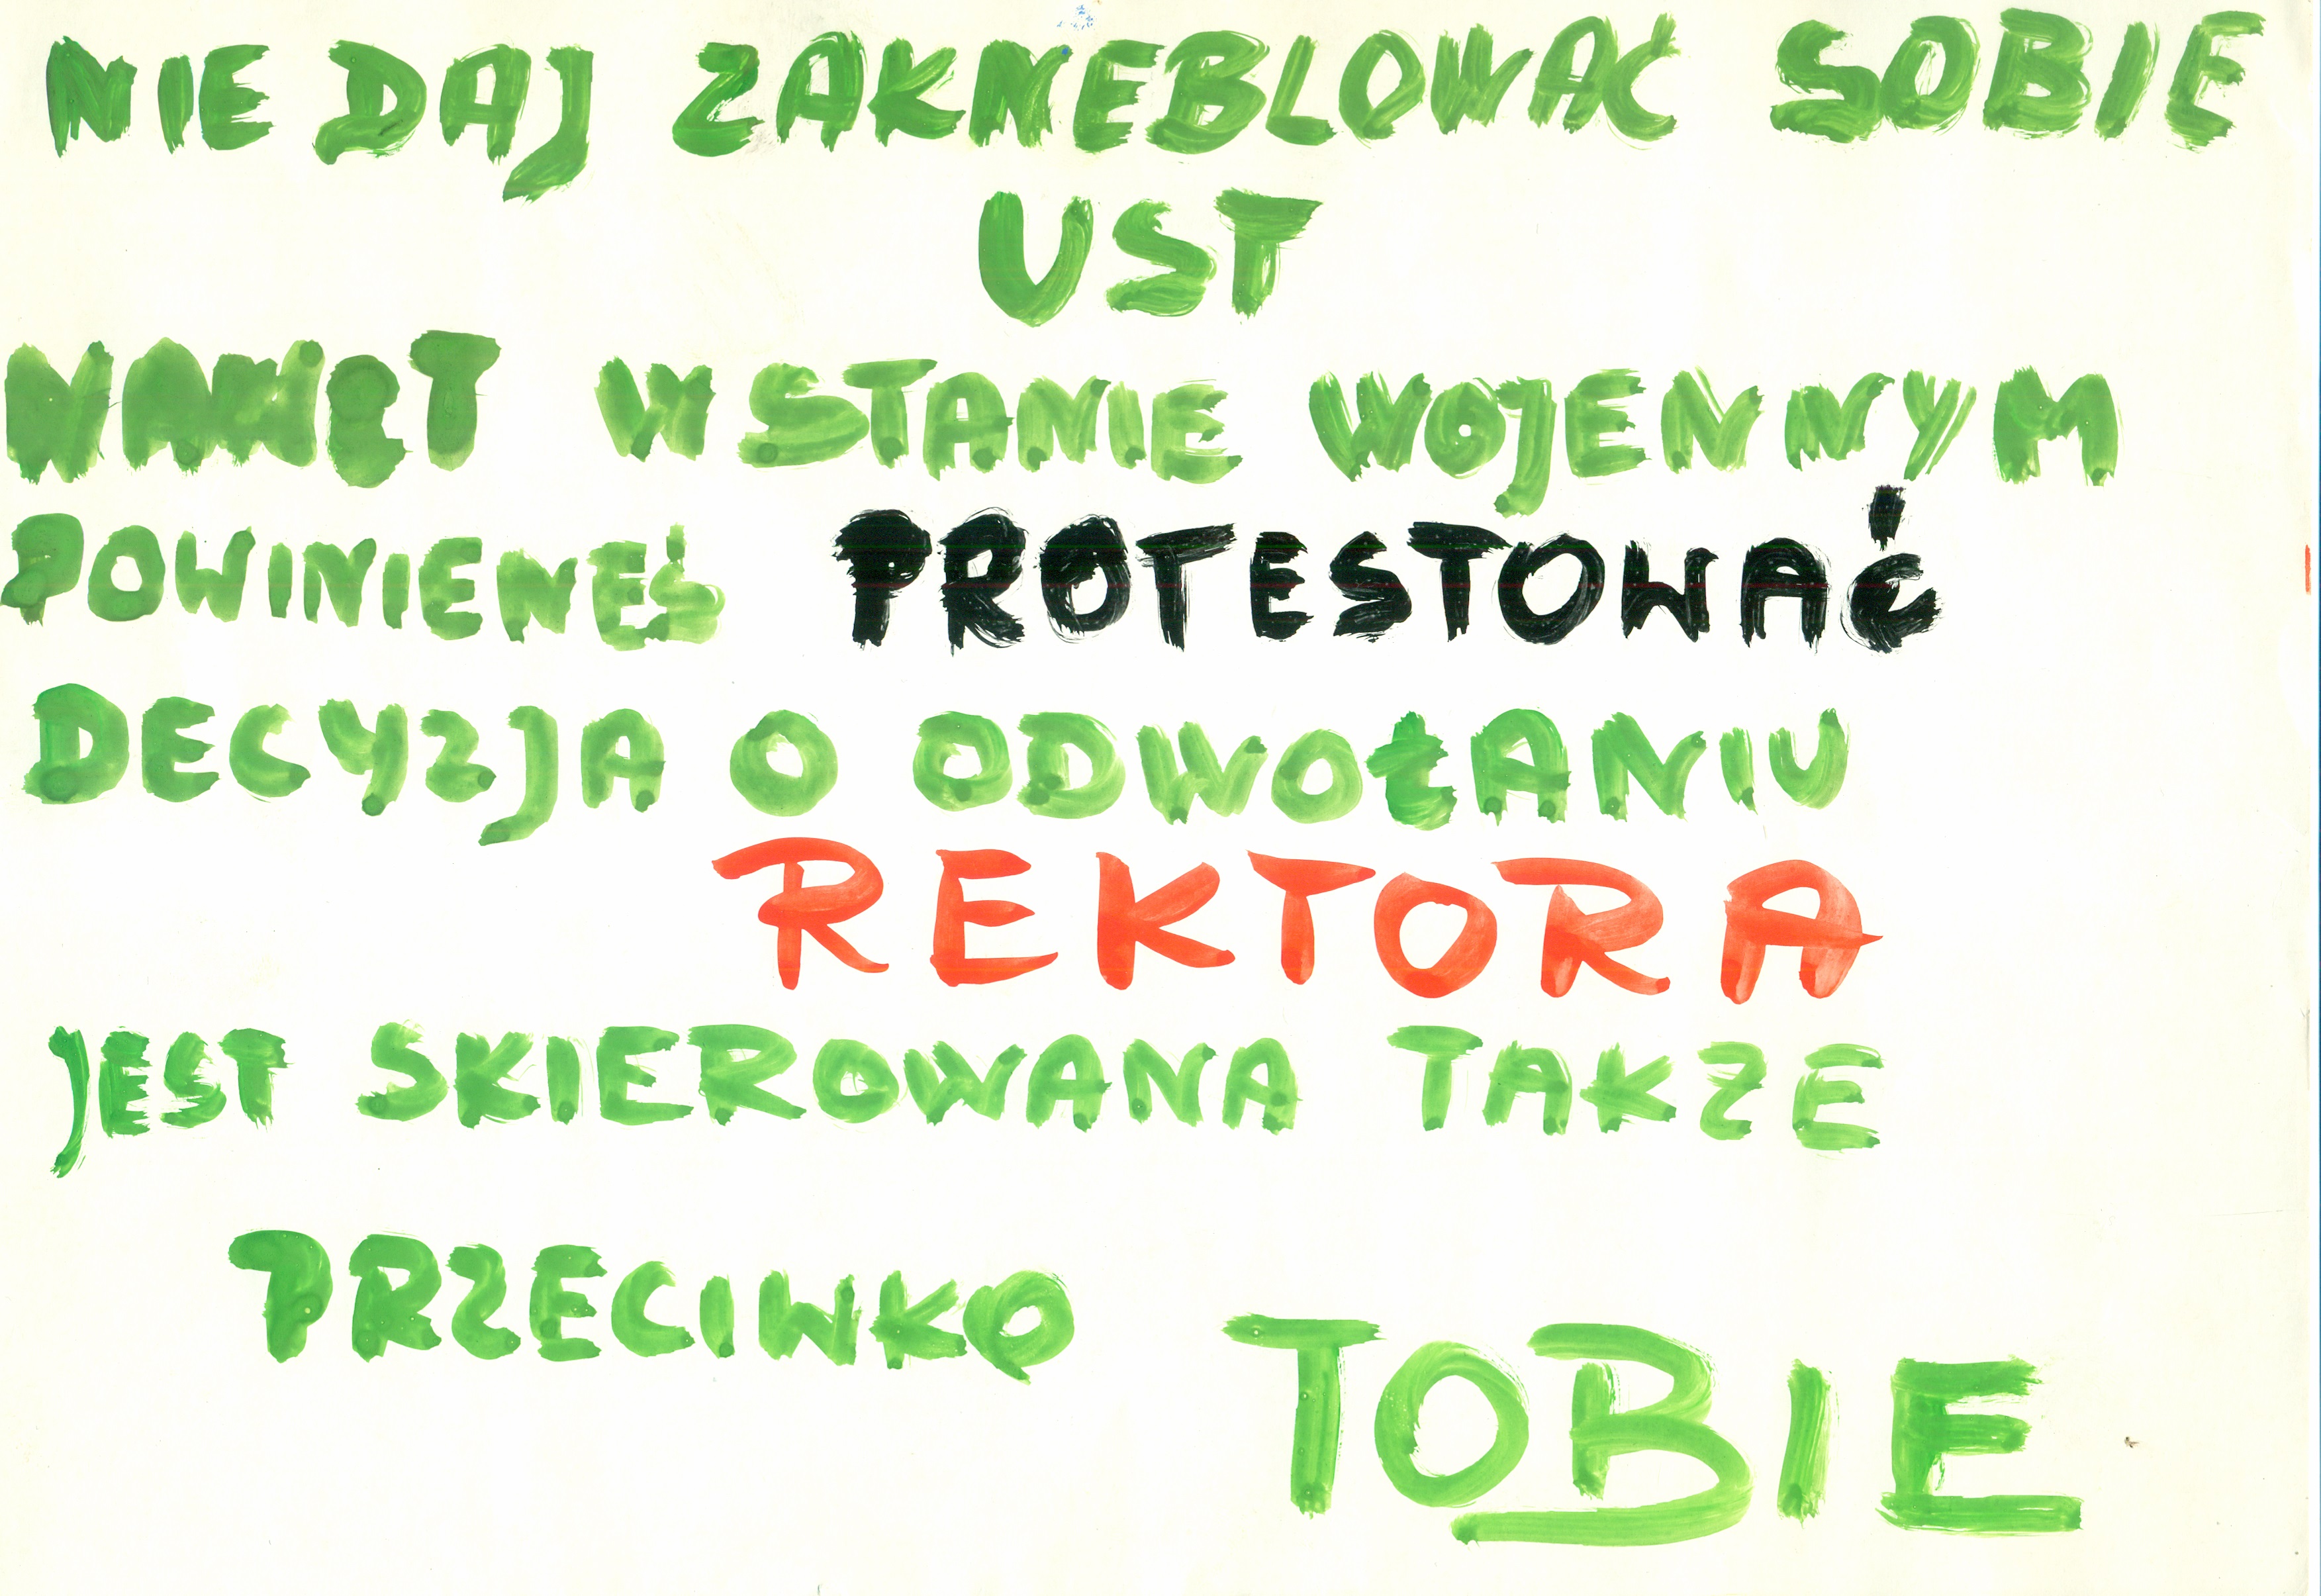 NIE DAJ ZAKNEBLOWAĆ SOBIE
UST
NAWET W STANIE WOJENNYM
POWINIENEŚ PROTESTOWAĆ
DECYZJA O ODWOŁANIU
REKTORA
JEST SKIEROWANA TAKZE
PRZECIWKO
TOBIE